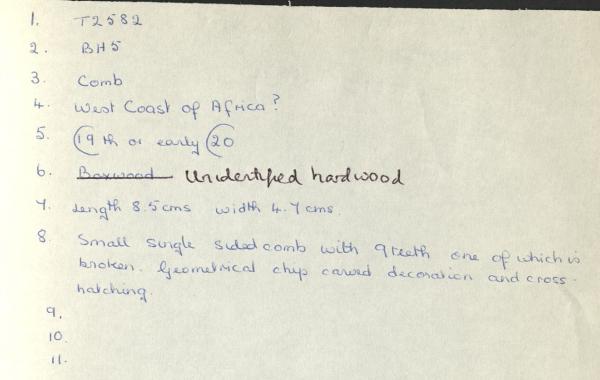 1. T2582
2. BH5
3. Comb
4. West Coast of Africa?
5. (19 th or early (20
6. Boxwood Unidentified hardwood
7. Length 8.5cms width 4.7cms.
8. Small single sided comb with 9 teeth one of which is
broken. Geometrical chip carved decoration and cross-
hatching.
9.
10.
11.